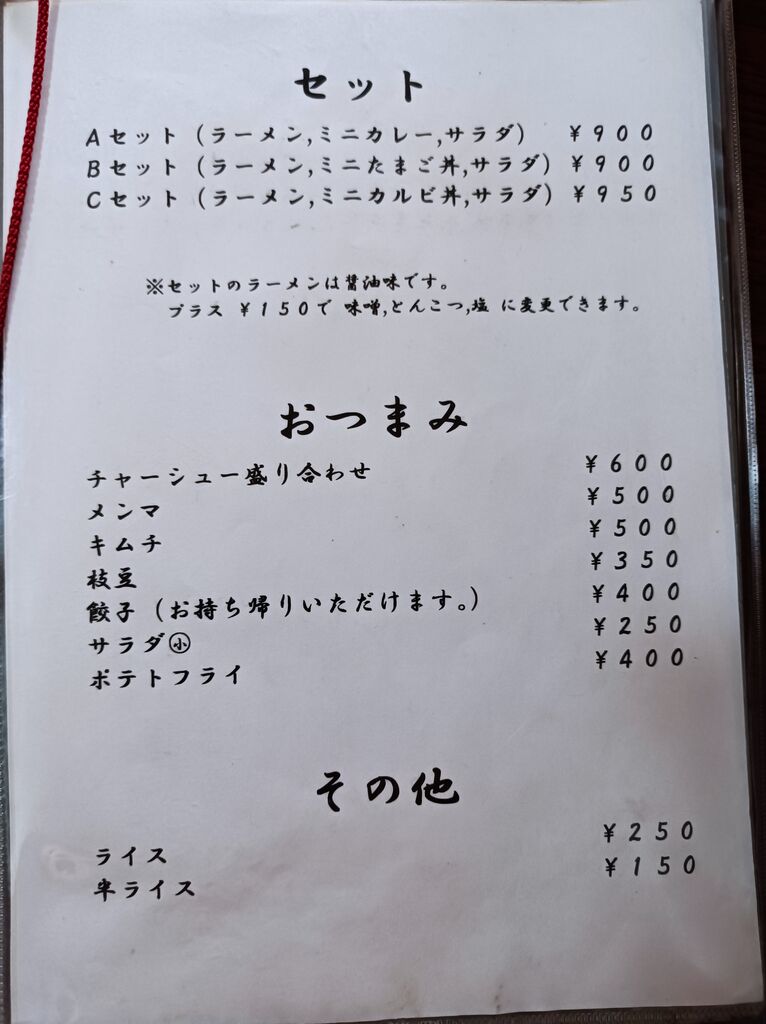 セット
Aセット (ラーメン,ミニカレー,サラダ) ¥900
Bセット (ラーメン,ミニたまご丼,サラダ) ¥900
Cセット (ラーメン,ミニカルビ丼,サラダ) ¥950
※セットのラーメンは醤油味です。
プラス ¥150で 味噌,とんこつ,塩 に変更できます。
おつまみ
チャーシュー盛り合わせ ¥600
メンマ ¥500
キムチ ¥500
枝豆 ¥350
餃子 (お持ち帰りいただけます。) ¥400
サラダ㊙小 ¥250
ポテトフライ ¥400
その他
ライス ¥250
半ライス ¥150